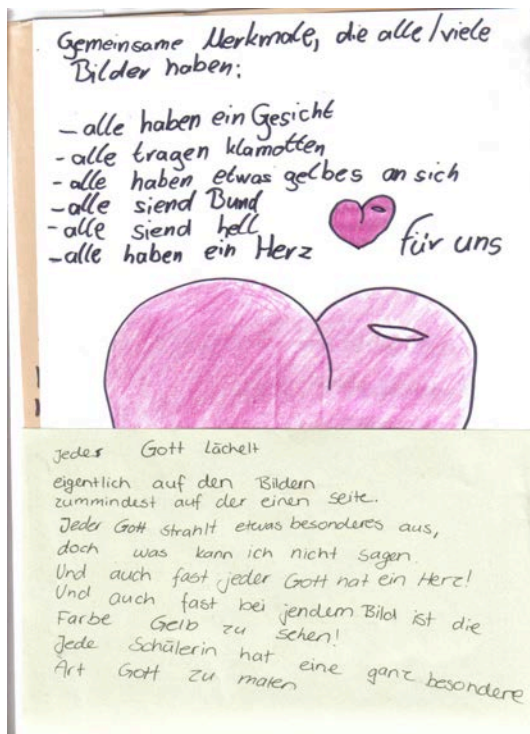 Gemeinsame Merkmale, die alle/viele
Bilder haben:
– alle haben ein Gesicht
- alle tragen klamotten
- alle haben etwas gelbes an sich
- alle siend Bund
- alle siend hell
- alle haben ein Herz für uns
jedes Gott Lächelt
eigentlich auf den Bildern
zummindest auf der einen seite.
Jeder Gott strahlt etwas besonderes aus,
doch was kann ich nicht sagen.
Und auch fast jeder Gott hat ein Herz!
Und auch fast bei jendem Bild ist die
Farbe Gelb zu sehen!
Jede Schülerin hat eine ganz besondere
Art Gott zu malen